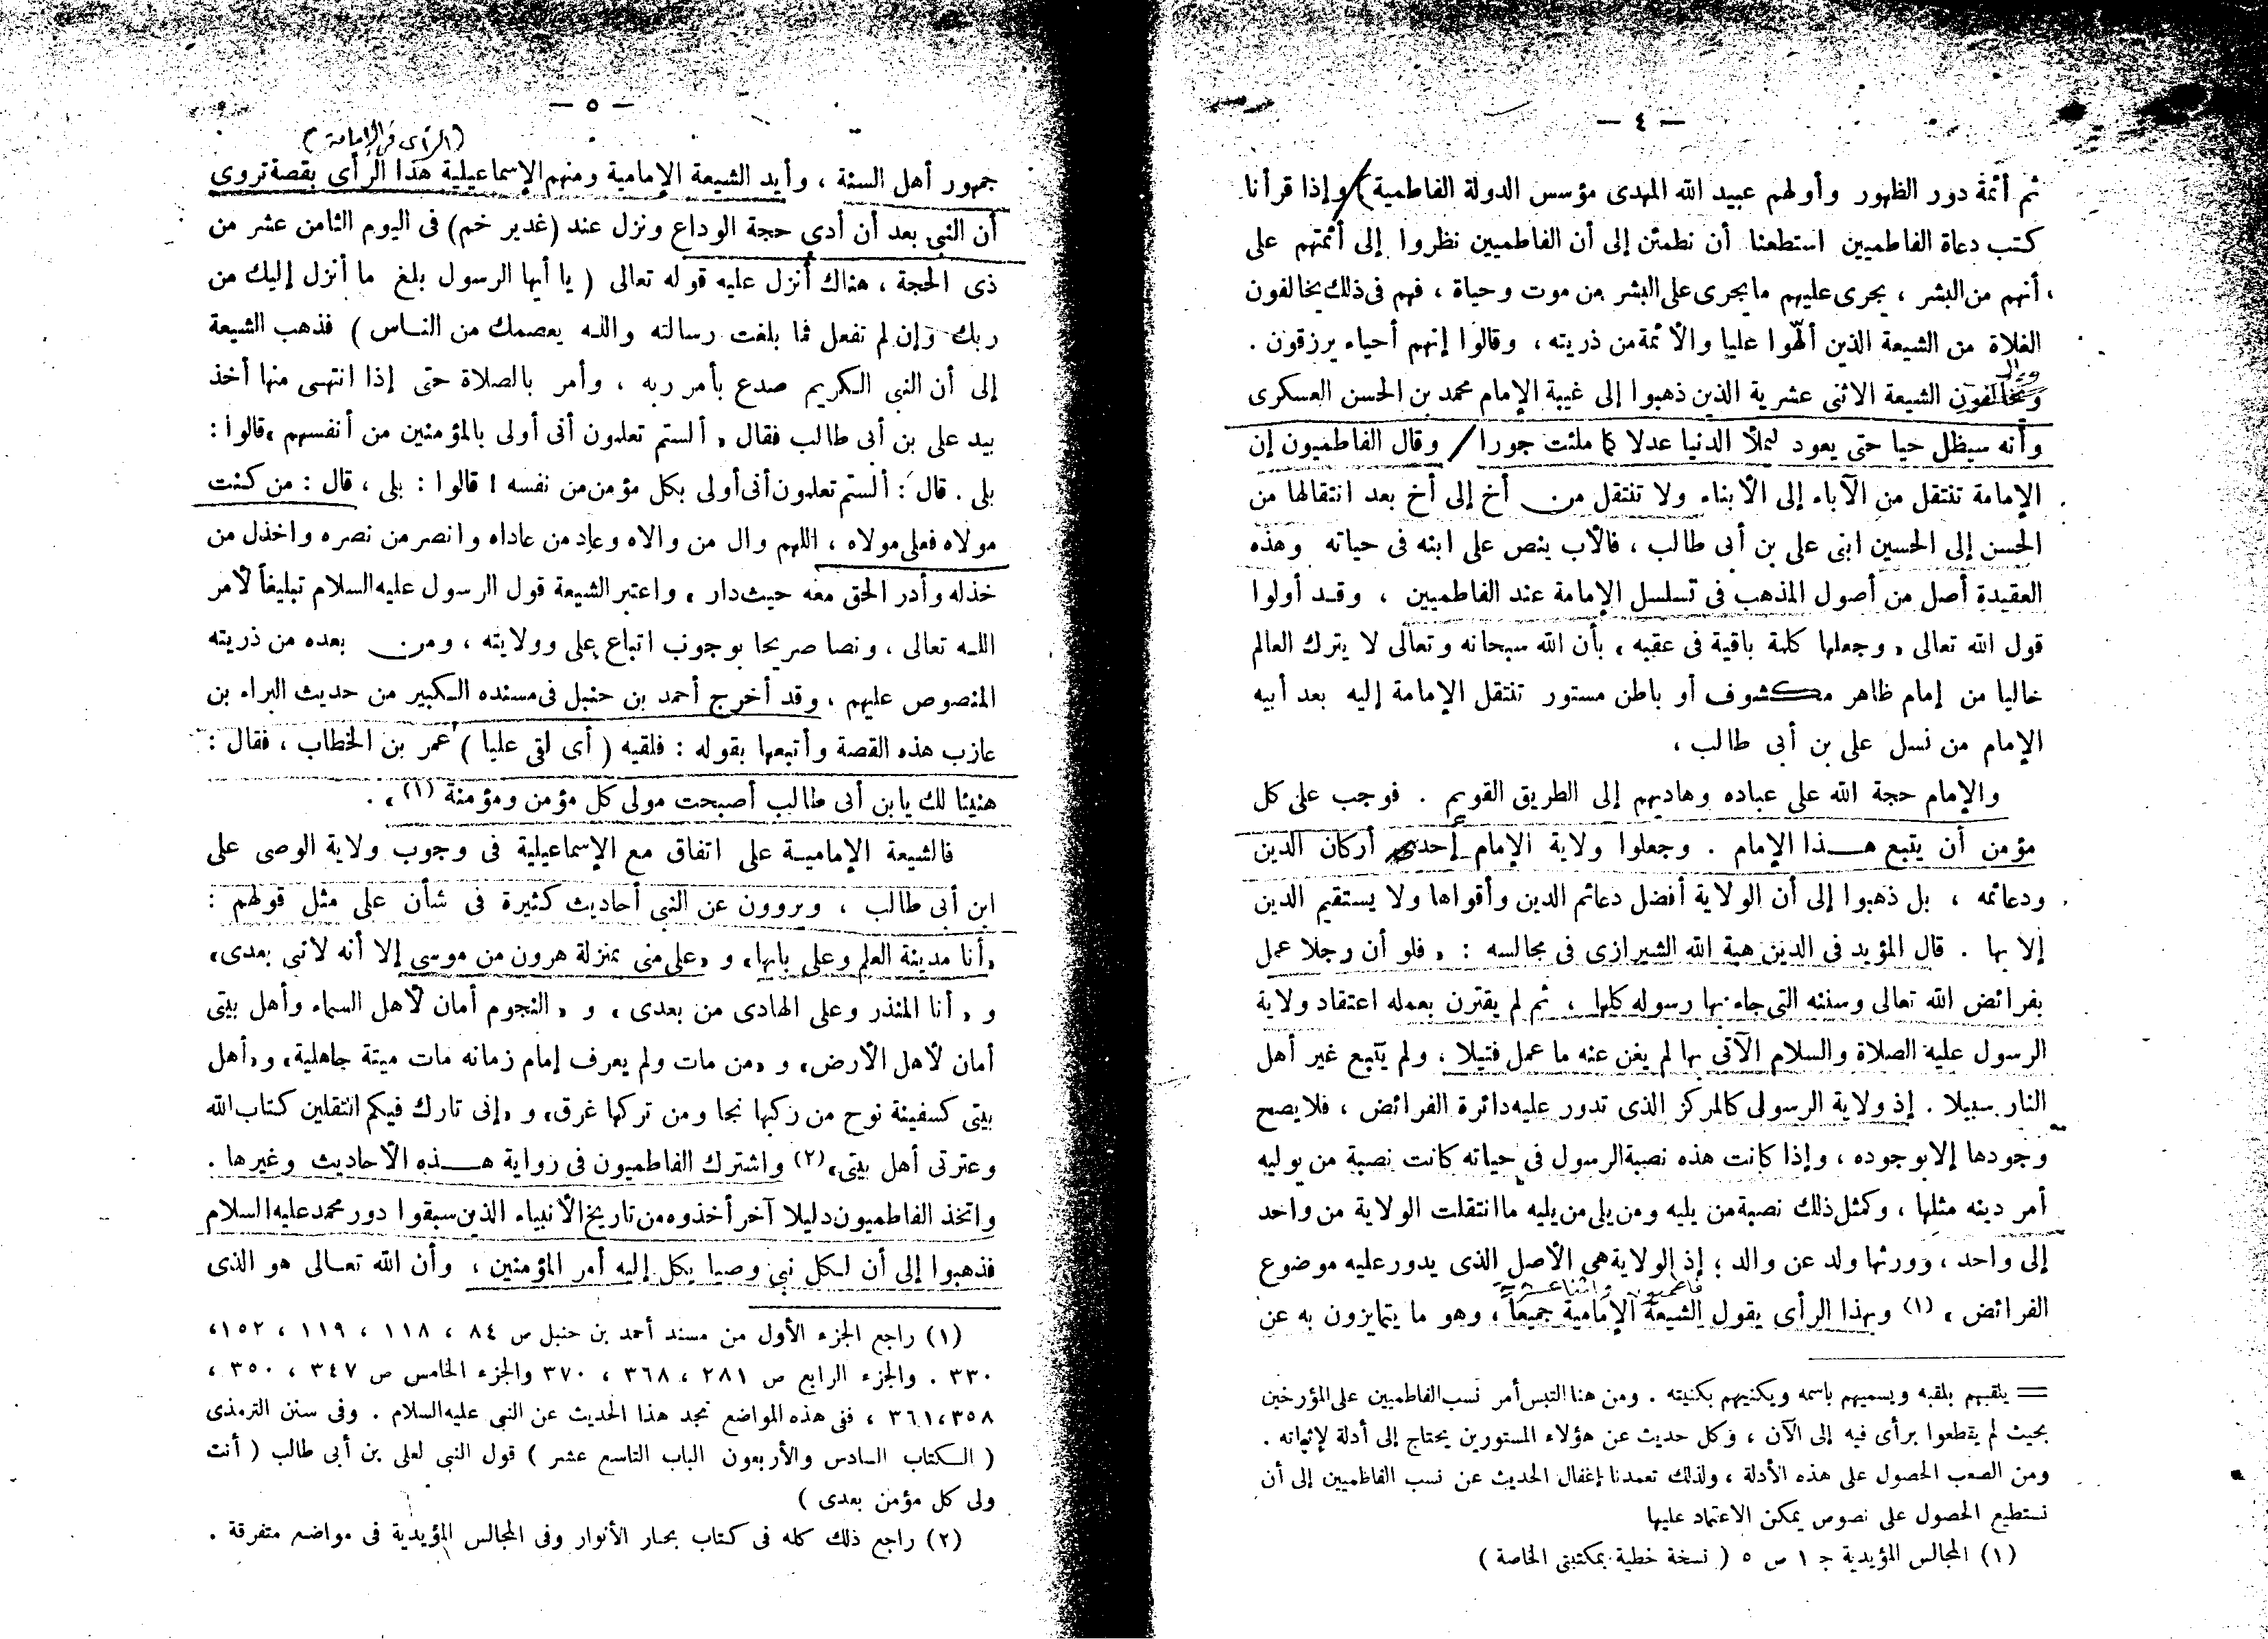 — ٤ —
ثم أئمة دور الظهور وأولهم عبيد الله المهدى مؤسس الدولة الفاطمية) وإذا قرأنا
كتب دعاة الفاطميين استطعنا أن نطمئن إلى أن الفاطميين نظروا إلى أئمتهم على
أنهم من البشر ، يجرى عليهم ما يجرى على البشر من موت وحياة ، فهم فى ذلك يخالفون
الغلاة من الشيعة الذين ألهوا عليا والأئمة من ذريته ، وقالوا إنهم أحياء يرزقون .
ويخالفون الشيعة الاثنى عشرية الذين ذهبوا إلى غيبة الإمام محمد بن الحسن العسكرى
وأنه سيظل حيا حتى يعود ليملأ الدنيا عدلا كما ملئت جورا / وقال الفاطميون إن
الإمامة تنتقل من الآباء إلى الأبناء ولا تنتقل من أخ إلى أخ بعد انتقالها من
الحسن إلى الحسين ابنى على بن أبى طالب ، فالأب ينص على ابنه فى حياته وهذه
العقيدة أصل من أصول المذهب فى تسلسل الإمامة عند الفاطميين ، وقد أولوا
قول الله تعالى « وجعلها كلمة باقية فى عقبه » بأن الله سبحانه وتعالى لا يترك العالم
خاليا من إمام ظاهر مكشوف أو باطن مستور تنتقل الإمامة إليه بعد أبيه
الإمام من نسل على بن أبى طالب ،
والإمام حجة الله على عباده وهاديهم إلى الطريق القويم . فوجب على كل
مؤمن أن يتبع هذا الإمام . وجعلوا ولاية الإمام أحد أركان الدين
ودعائمه ، بل ذهبوا إلى أن الولاية أفضل دعائم الدين وأقواها ولا يستقيم الدين
إلا بها . قال المؤيد فى الدين هبة الله الشيرازى فى مجالسه : « فلو أن رجلا عمل
بفرائض الله تعالى وسنته التى جاء بها رسوله كلها ، ثم لم يقترن بعمله اعتقاد ولاية
الرسول عليه الصلاة والسلام الآتى بها لم يغن عنه ما عمل فتيلا ، ولم يتبع غير أهل
النار سبيلا . إذ ولاية الرسول كالمركز الذى تدور عليه دائرة الفرائض ، فلا يصح
وجودها إلا بوجوده ، وإذا كانت هذه نصبة الرسول فى حياته كانت نصبة من يوليه
أمر دينه مثلها ، وكمثل ذلك نصبة من يليه ومن يلى من يليه ما انتقلت الولاية من واحد
إلى واحد ، وورثها ولد عن والد ؛ إذ الولاية هى الأصل الذى يدور عليه موضوع
فاطميون واثناعشرية
الفرائض » (١) وبهذا الرأى يقول الشيعة الإمامية جميعاً ، وهو ما يتمايزون به عن
= يلقبهم بلقبه ويسميهم باسمه ويكنيهم بكنيته . ومن هنا التبس أمر نسب الفاطميين على المؤرخين
بحيث لم يقطعوا برأى فيه إلى الآن ، وكل حديث عن هؤلاء المستورين يحتاج إلى أدلة لإثباته .
ومن الصعب الحصول على هذه الأدلة ، ولذلك تعمدنا إغفال الحديث عن نسب الفاطميين إلى أن
نستطيع الحصول على نصوص يمكن الاعتماد عليها
(١) المجالس المؤيدية ج ١ ص ٥ ( نسخة خطية بمكتبتى الخاصة )
— ٥ —
(الرأى فى الإمامة)
جمهور أهل السنة ، وأيد الشيعة الإمامية ومنهم الإسماعيلية هذا الرأى بقصة تروى
أن النبى بعد أن أدى حجة الوداع ونزل عند (غدير خم) فى اليوم الثامن عشر من
ذى الحجة ، هناك أنزل عليه قوله تعالى ( يا أيها الرسول بلغ ما أنزل إليك من
ربك وإن لم تفعل فما بلغت رسالته والله يعصمك من الناس ) فذهب الشيعة
إلى أن النبى الكريم صدع بأمر ربه ، وأمر بالصلاة حتى إذا انتهى منها أخذ
بيد على بن أبى طالب فقال « ألستم تعلمون أنى أولى بالمؤمنين من أنفسهم » قالوا :
بلى . قال : ألستم تعلمون أنى أولى بكل مؤمن من نفسه ! قالوا : بلى ، قال : من كنت
مولاه فعلى مولاه ، اللهم وال من والاه وعاد من عاداه وانصر من نصره واخذل من
خذله وأدر الحق معه حيث دار » واعتبر الشيعة قول الرسول عليه السلام تبليغاً لأمر
الله تعالى ، ونصا صريحا بوجوب اتباع على وولايته ، ومن بعده من ذريته
المنصوص عليهم ، وقد أخرج أحمد بن حنبل فى مسنده الكبير من حديث البراء بن
عازب هذه القصة وأتبعها بقوله : فلقيه ( أى لقى عليا ) عمر بن الخطاب ، فقال :
هنيئا لك يا بن أبى طالب أصبحت مولى كل مؤمن ومؤمنة (١) » .
فالشيعة الإمامية على اتفاق مع الإسماعيلية فى وجوب ولاية الوصى على
ابن أبى طالب ، ويروون عن النبى أحاديث كثيرة فى شأن على مثل قولهم :
« أنا مدينة العلم وعلى بابها » و « على منى بمنزلة هرون من موسى إلا أنه لا نبى بعدى »
و « أنا المنذر وعلى الهادى من بعدى » و « النجوم أمان لأهل السماء وأهل بيتى
أمان لأهل الأرض » و « من مات ولم يعرف إمام زمانه مات ميتة جاهلية » و « أهل
بيتى كسفينة نوح من ركبها نجا ومن تركها غرق » و « إنى تارك فيكم الثقلين كتاب الله
وعترتى أهل بيتى » (٢) واشترك الفاطميون فى رواية هذه الأحاديث وغيرها .
واتخذ الفاطميون دليلا آخر أخذوه من تاريخ الأنبياء الذين سبقوا دور محمد عليه السلام
فذهبوا إلى أن لكل نبى وصيا يكل إليه أمر المؤمنين ، وأن الله تعالى هو الذى
(١) راجع الجزء الأول من مسند أحمد بن حنبل ص ٨٤ ، ١١٨ ، ١١٩ ، ١٥٢ ،
٣٣٠ . والجزء الرابع ص ٢٨١ ، ٣٦٨ ، ٣٧٠ والجزء الخامس ص ٣٤٧ ، ٣٥٠ ،
٣٥٨ ، ٣٦١ ، ففى هذه المواضع تجد هذا الحديث عن النبى عليه السلام . وفى سنن الترمذى
( الكتاب السادس والأربعون الباب التاسع عشر ) قول النبى لعلى بن أبى طالب ( أنت
ولى كل مؤمن بعدى )
(٢) راجع ذلك كله فى كتاب بحار الأنوار وفى المجالس المؤيدية فى مواضع متفرقة .